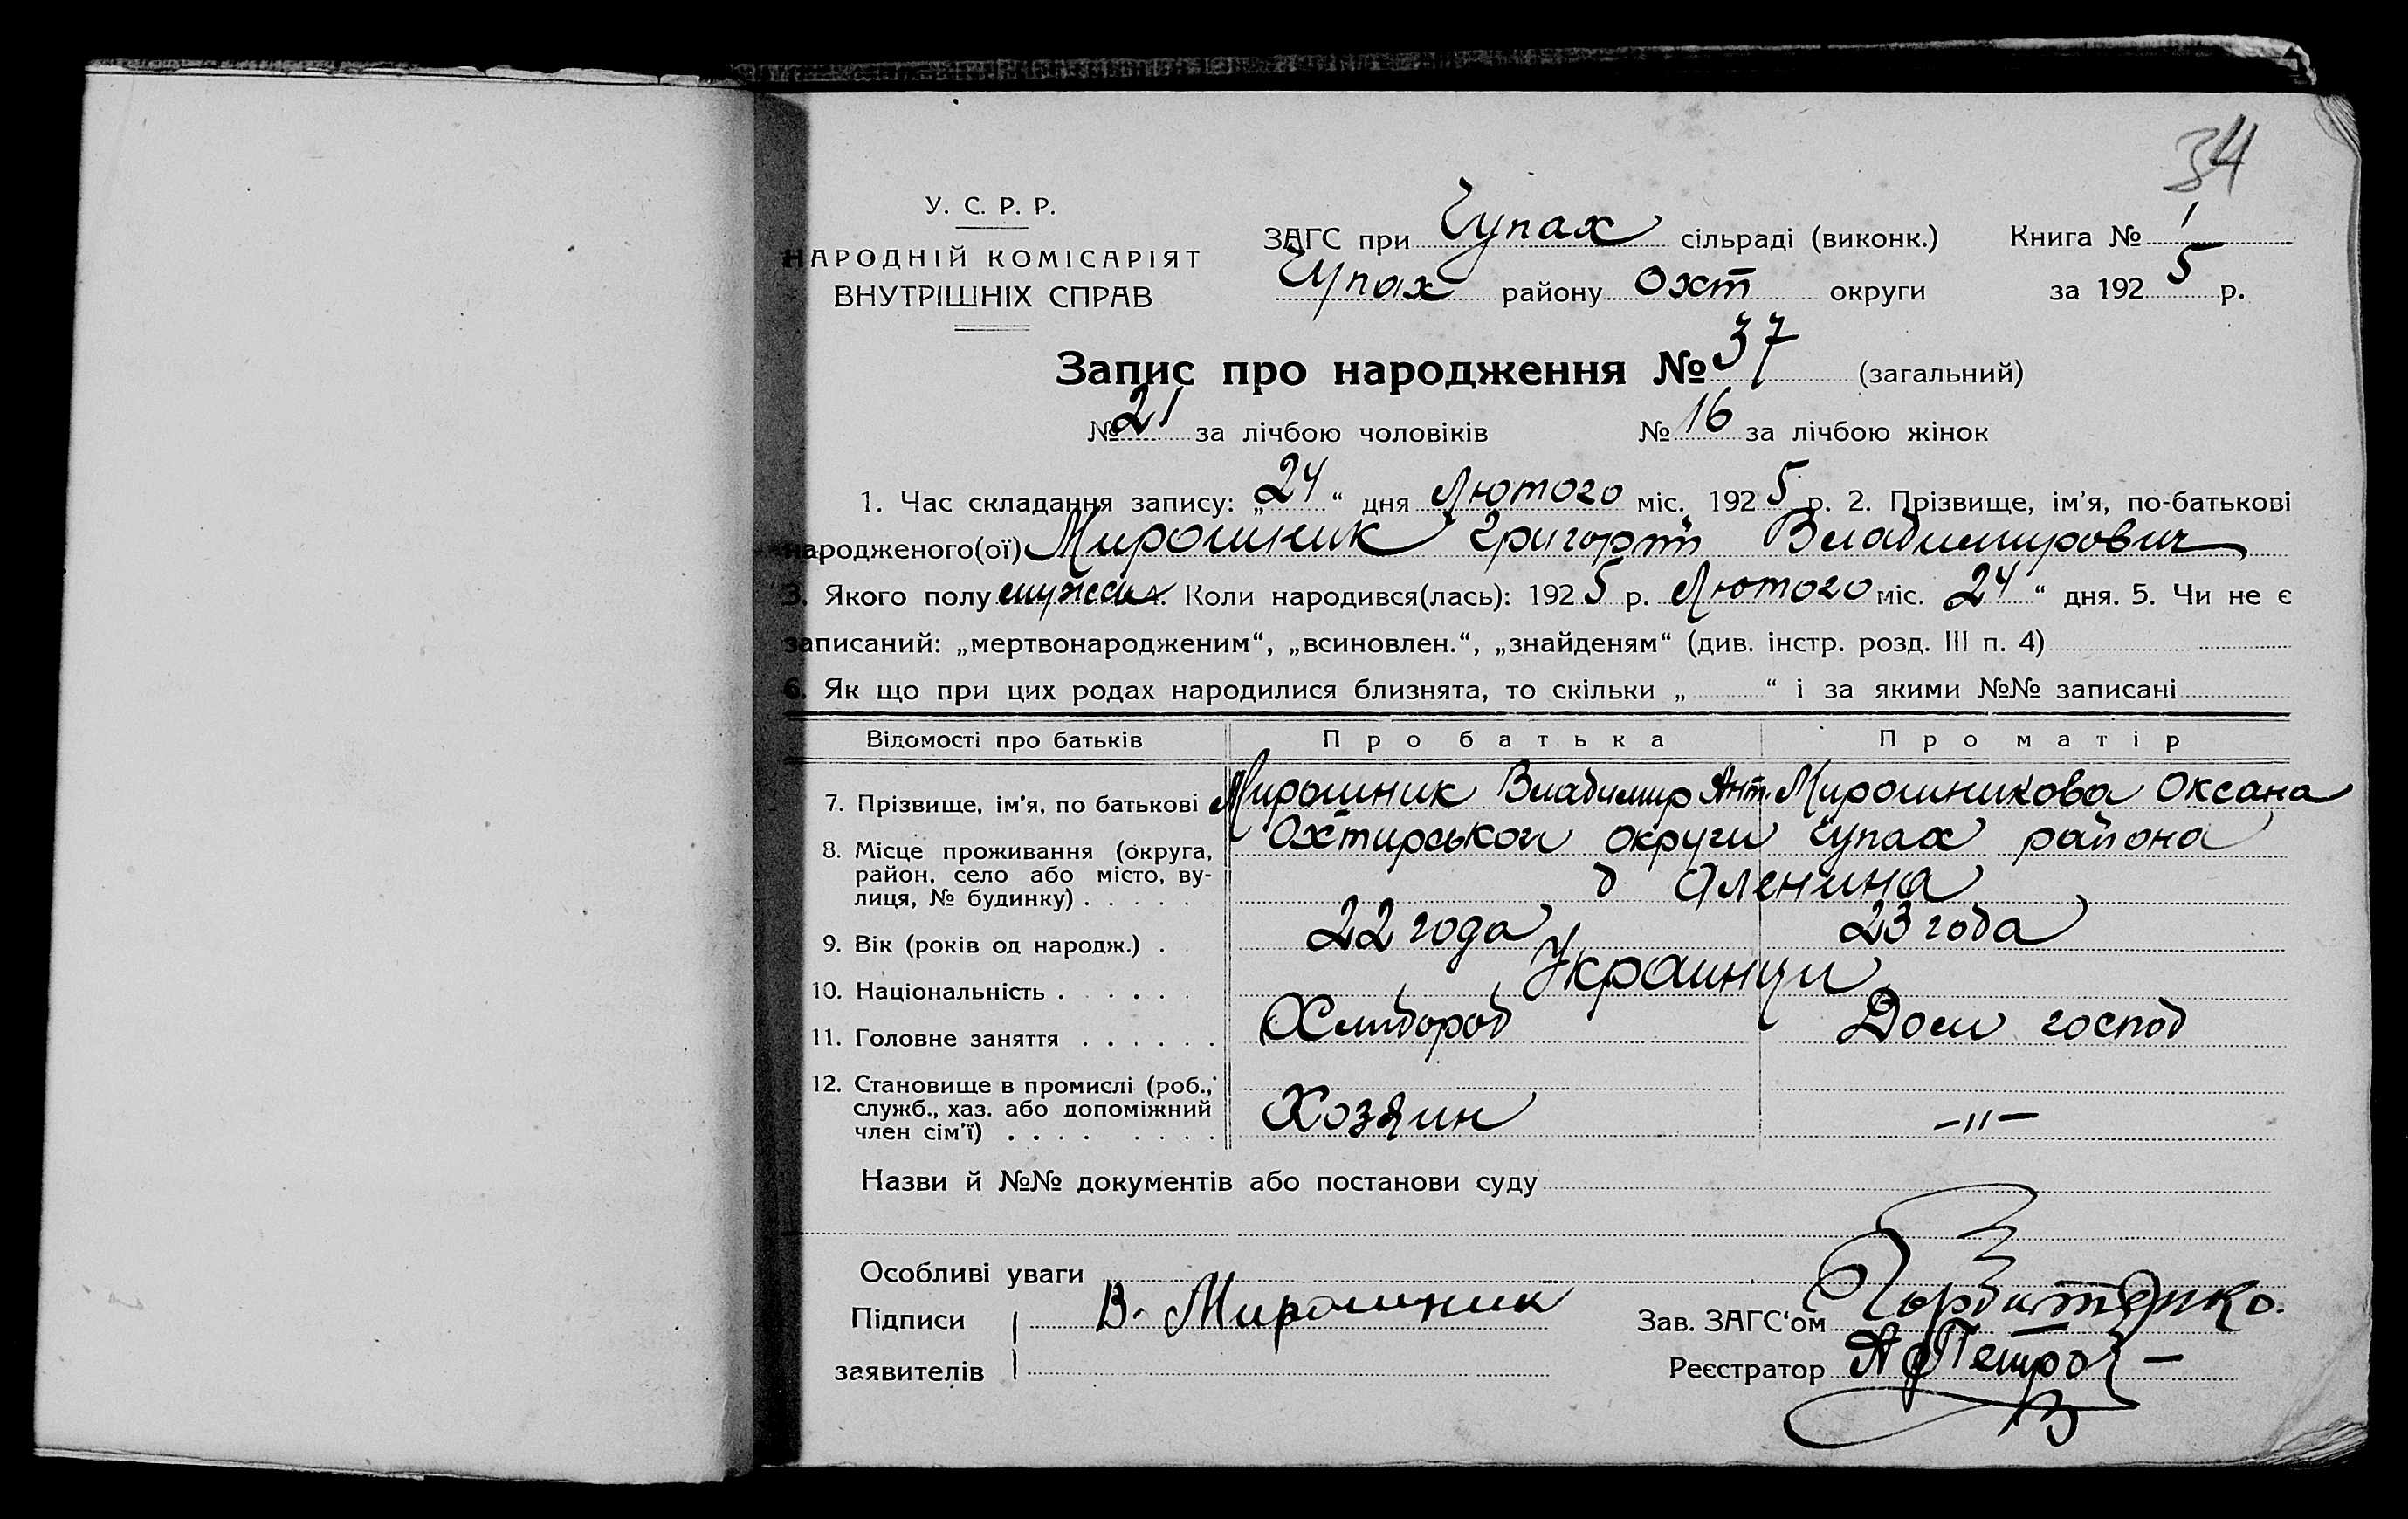 34
У. С. Р. Р.
НАРОДНІЙ КОМІСАРІЯТ
ВНУТРІШНІХ СПРАВ
ЗАГС при Чупах сільраді (виконк.) Книга № 1
Чупах району Охт округи за 1925 р.
Запис про народження № 37 (загальний)
№ 21 за лічбою чоловіків № 16 за лічбою жінок
1. Час складання запису: „24“ дня Лютого міс. 1925 р. 2. Прізвище, ім’я, по-батькові
народженого(ої) Мирошник Григорій Владимирович
3. Якого полу мужск 4. Коли народився(лась): 1925 р. Лютого міс. 24“ дня. 5. Чи не є
записаний: „мертвонародженим“, „всиновлен.“, „знайденям“ (див. інстр. розд. III п. 4)
6. Як що при цих родах народилися близнята, то скільки „ “ і за якими №№ записані
Відомості про батьків Про батька Про матір
7. Прізвище, ім’я, по батькові Мирошник Владимир Ант. Мирошникова Оксана
8. Місце проживання (округа, район, село або місто, вулиця, № будинку) . . . . . Охтирськои округи Чупах района
д Яленина
9. Вік (років од народж.) . 22 года 23 года
10. Національність . . . . . . Украинци
11. Головне заняття . . . . . . Хлибороб Дом господ
12. Становище в промислі (роб., служб., хаз. або допоміжний член сім’ї) . . . . . . . . Хозяин —"—
Назви й №№ документів або постанови суду
Особливі уваги
Підписи В. Мирошник Зав. ЗАГС‘ом
заявителів Реєстратор